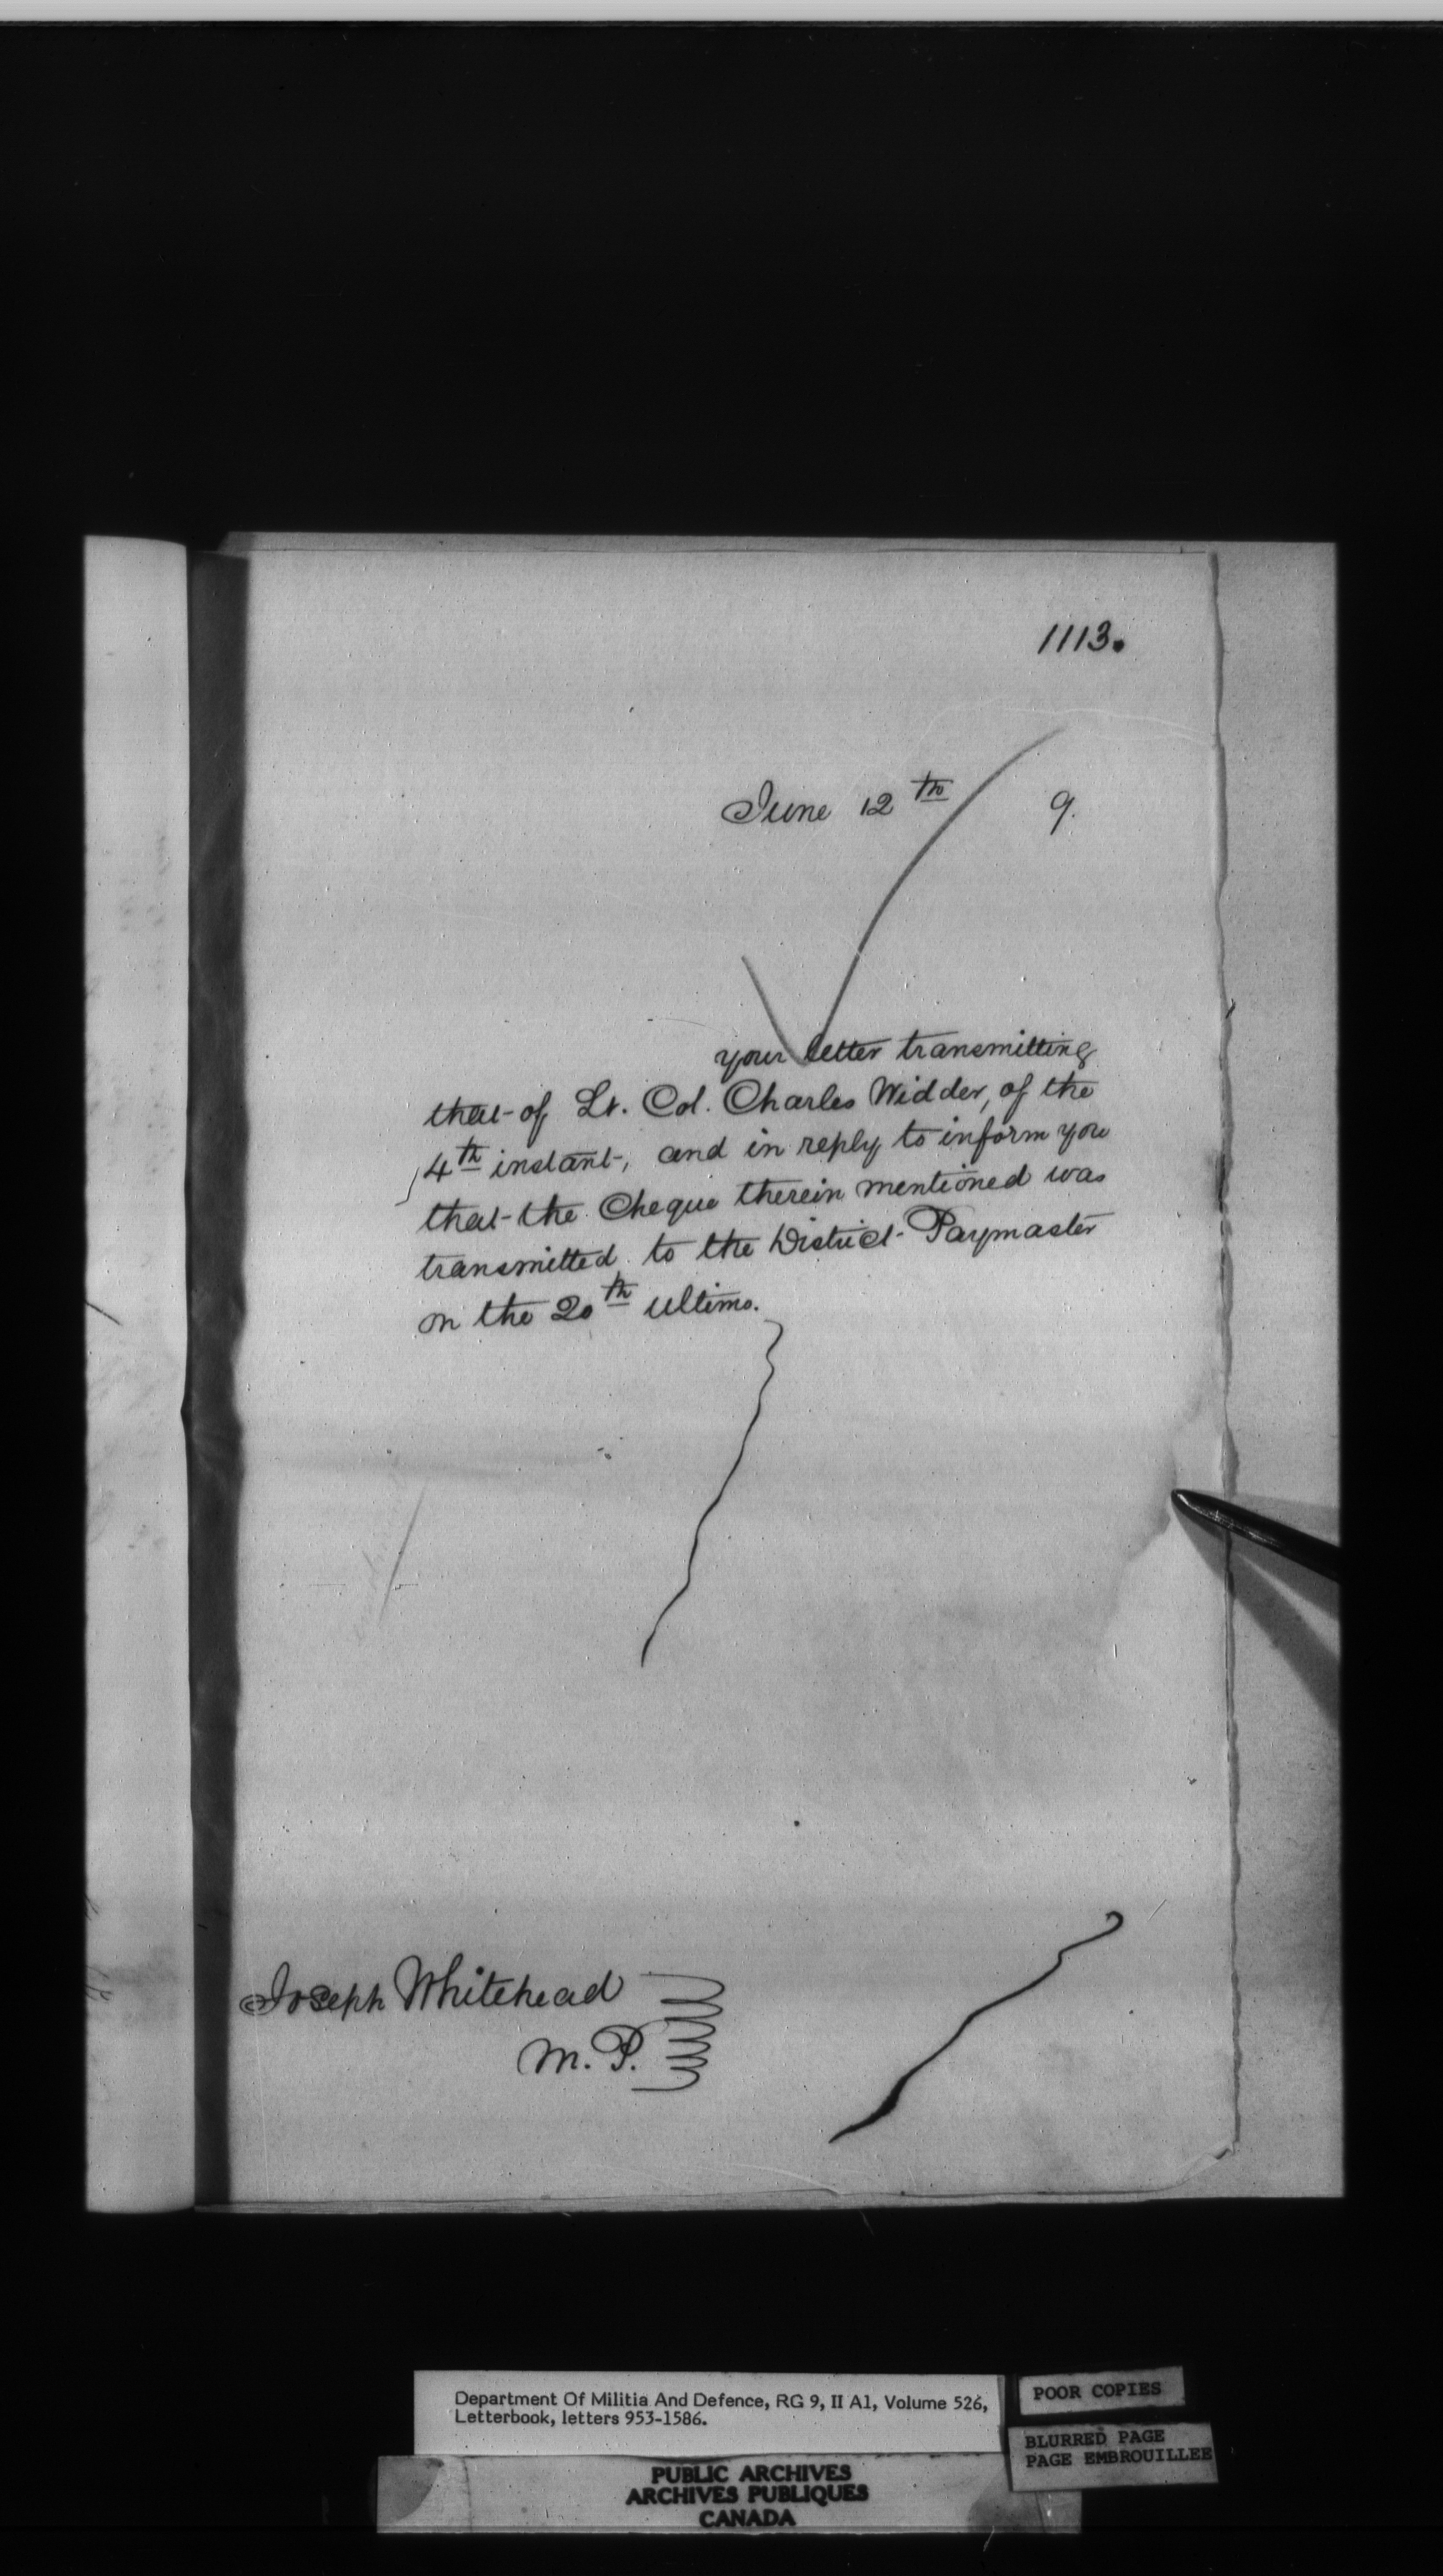 1113.
June 12th 9.
your letter transmitting
that of Lt. Col. Charles Widder, of the
4th instant, and in reply to inform you
that the Cheque therein mentioned was
transmitted to the District Paymaster
on the 20th ultimo.
Joseph Whitehead
M.P.
Department Of Militia And Defence, RG 9, II A1, Volume 526,
Letterbook, letters 953-1586.
POOR COPIES
BLURRED PAGE
PAGE EMBROUILLEE
PUBLIC ARCHIVES
ARCHIVES PUBLIQUES
CANADA